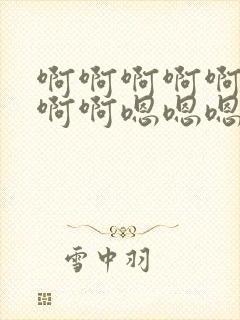 啊啊啊啊啊
啊啊嗯嗯嗯
雪中羽